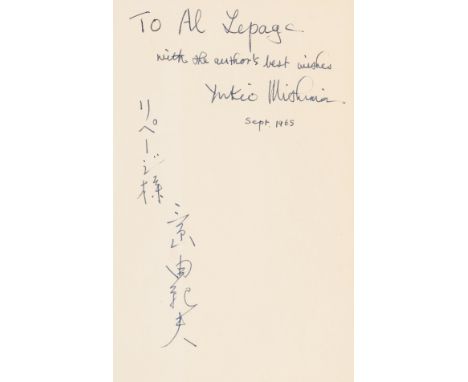 To Al Lepage
with the author's best wishes
Yukio Mishima
Sept 1965
リページ様
三島由紀夫